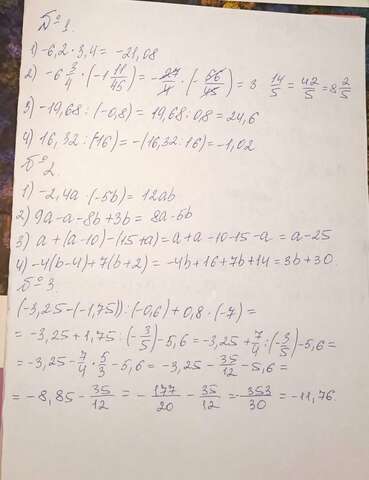 № 1.
1) -6,2 · 3,4 = -21,08
2) -6 3/4 · (-1 11/45) = -27/4 · (-56/45) = 3 · 14/5 = 42/5 = 8 2/5
3) -19,68 : (-0,8) = 19,68 : 0,8 = 24,6
4) 16,32 : (-16) = -(16,32 : 16) = -1,02
№ 2.
1) -2,4a · (-5b) = 12ab
2) 9a - a - 8b + 3b = 8a - 5b
3) a + (a - 10) - (15 + a) = a + a - 10 - 15 - a = a - 25
4) -4(b - 4) + 7(b + 2) = -4b + 16 + 7b + 14 = 3b + 30.
№ 3.
(-3,25 - (-1,75)) : (-0,6) + 0,8 · (-7) =
= -3,25 + 1,75 : (-3/5) - 5,6 = -3,25 + 7/4 : (-3/5) - 5,6 =
= -3,25 - 7/4 · 5/3 - 5,6 = -3,25 - 35/12 - 5,6 =
= -8,85 - 35/12 = -177/20 - 35/12 = -353/30 = -11,76.